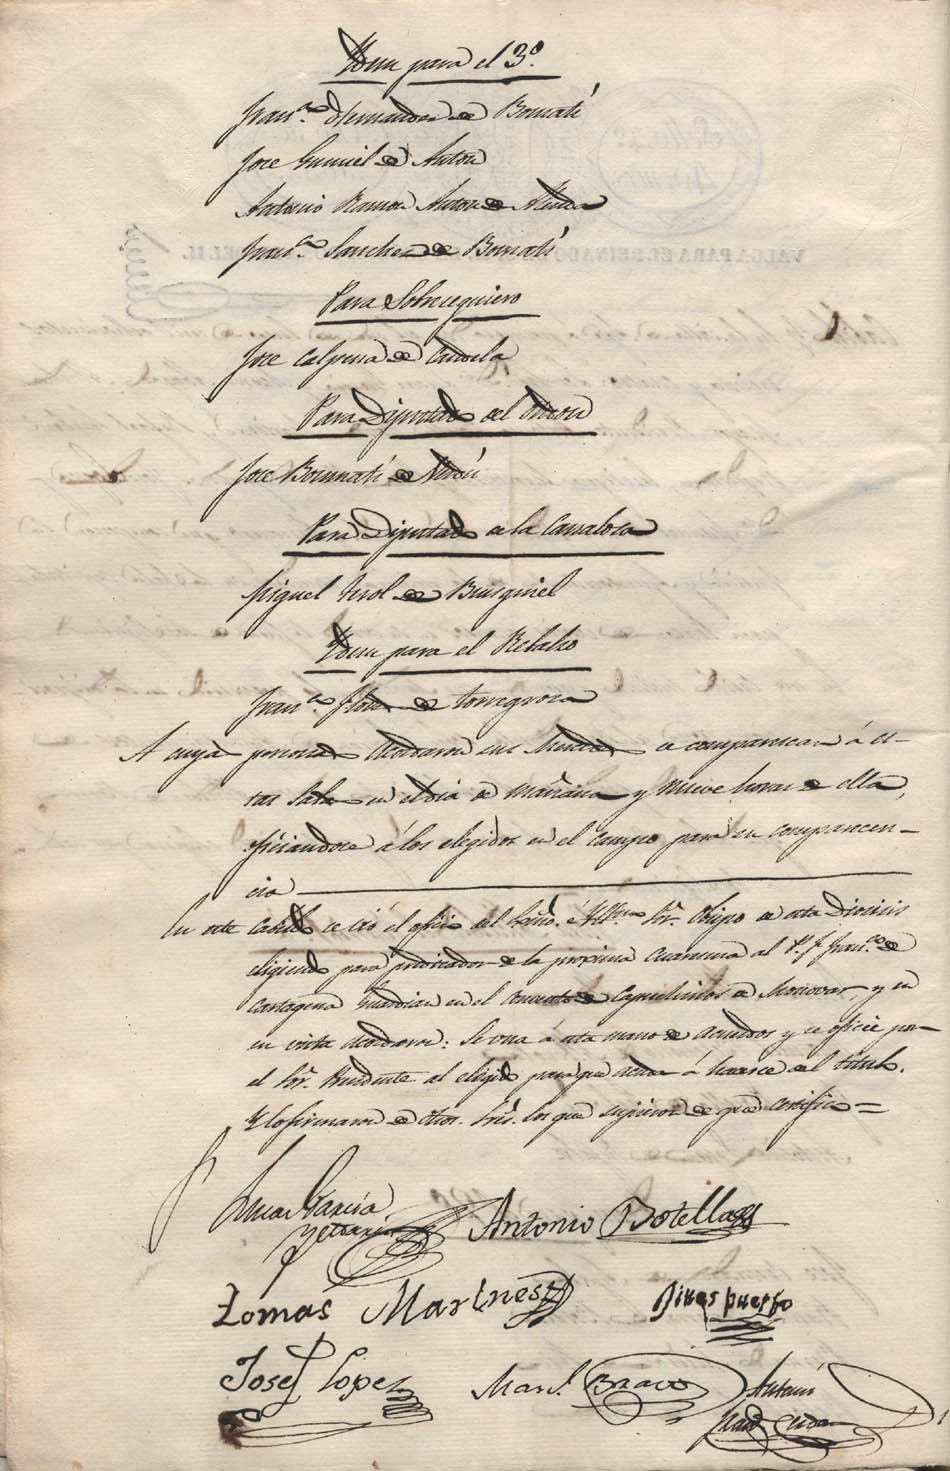 Ydem para el 3º.
Franco. Hernandez de Bonmatí
Jose Gumiel de Anton
Antonio Ramon Anton de
Franco. Sanchez de Bonmatí
Para Sobrecequiero
Jose Calpena de Candela
Para Diputado del
Jose Bonmatí de
Para Diputado de la Canalosa
Miguel Terol de Burguiel
Ydem para el Rebalso
Franco. Flores de Torregrosa
A cuyas personas acordaron sus Mercedes se comparezcan á es-
tas Salas en el dia de mañana y nueve horas de ella,
oficiandose á los elegidos en el campo para su comparecen-
cia
En este Cabildo se leió el oficio del Exmo. é Illmo. Sor. Obispo de esta Diocesis
eligiendo para predicador de la proxima Cuaresma al P. F. Franco. de
Cartagena Guardian en el convento de Capuchinos de Monovar, y en
su vista acordaron: Se una á esta mano de acuerdos y se oficie por
el Sor. Presidente al elegido para que acuda á hacerse del titulo.
Y lo firmaron de dhos. Sres. los que supieron de que certifico=
Lucas Garcia
Antonio Botella
Tomas Martines
Vives puerto
Josef Lopez
Manl. Bravo
Antonio